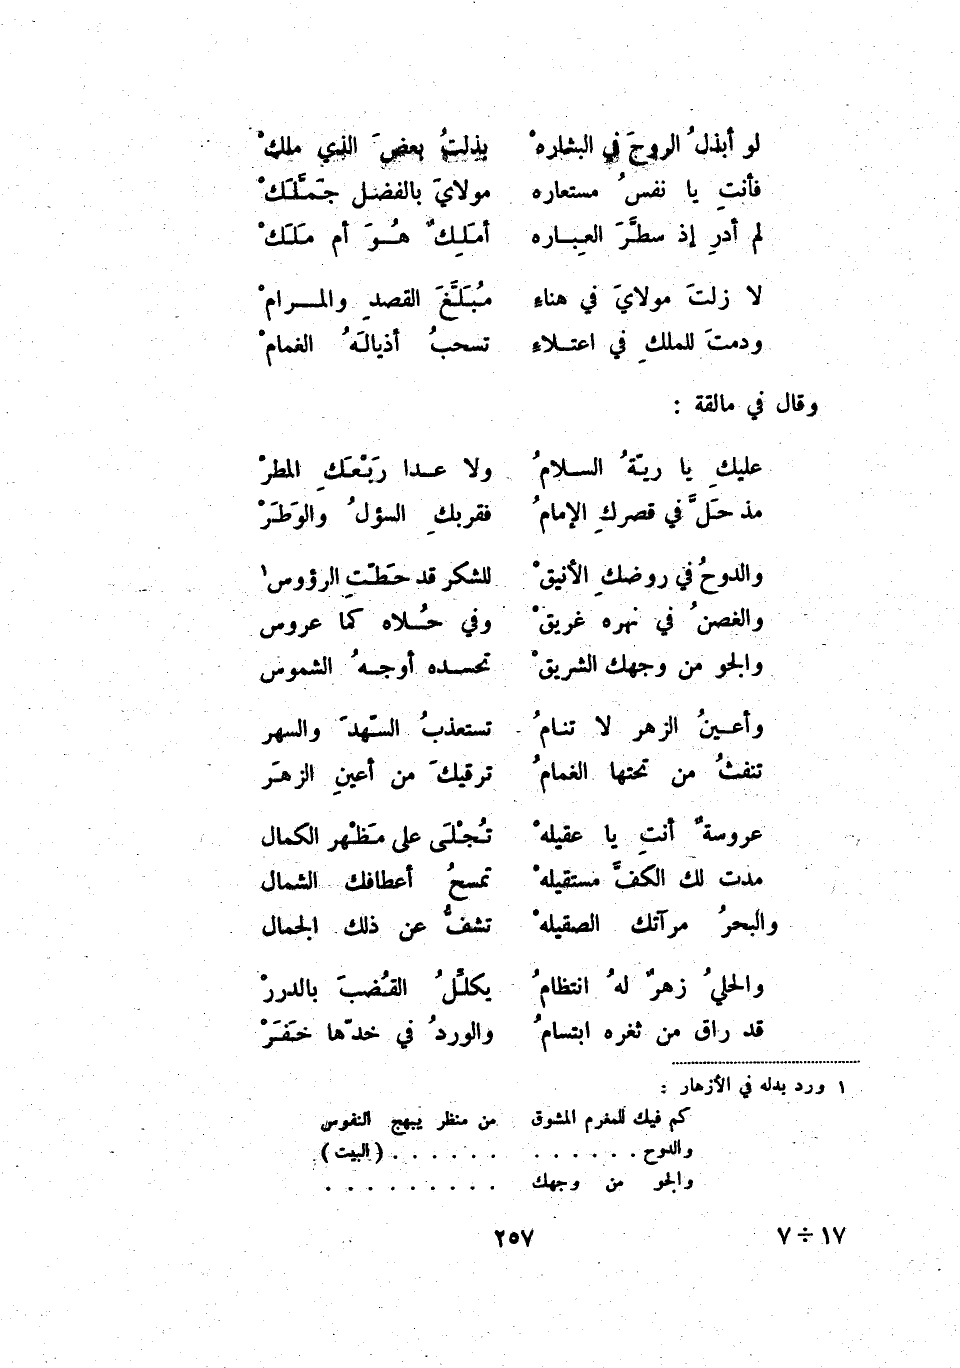 لو أبذلُ الروحَ في البشارهْ بذلتُ بعضَ الذي ملكْ
فأنتِ يا نفسُ مستعاره مولايَ بالفضل جَمَّلَكْ
لم أدرِ إذ سطَّرَ العِباره أمَلِكٌ هُوَ أم مَلَكْ
لا زلتَ مولايَ في هناءِ مُبَلَّغَ القصدِ والمرامْ
ودمتَ للملكِ في اعتلاءِ تسحبُ أذيالَهُ الغمامْ
وقال في مالقة :
عليكِ يا ريّةُ السلامُ ولا عدا رَبْعَكِ المطرْ
مذ حَلَّ في قصركِ الإمامُ فقربكِ السؤلُ والوَطَرْ
والدوحُ في روضكِ الأنيقْ للشكر قد حَطّتِ الرؤوس١
والغصنُ في نهره غريقْ وفي حُلاه كما عروس
والجو من وجهك الشريقْ تحسده أوجهُ الشموس
وأعينُ الزهر لا تنامُ تستعذبُ السّهدَ والسهر
تنفثُ من تحتها الغمامُ ترقيكَ من أعينِ الزهَر
عروسةٌ أنتِ يا عقيلهْ تُجْلَى على مَظْهر الكمال
مدت لك الكفَّ مستقيلهْ تمسحُ أعطافك الشمال
والبحرُ مرآتك الصقيلهْ تشفُّ عن ذلك الجمال
والحليُ زهرٌ لهُ انتظامُ يكلّلُ القُضبَ بالدررْ
قد راق من ثغره ابتسامُ والوردُ في خدّها خَفَرْ
١ ورد بدله في الأزهار :
كم فيك للمغرم المشوق من منظر يبهج النفوس
والدوح . . . . . . . . . . . . (البيت)
والجو من وجهك . . . . . . . . .
١٧ ÷ ٧ ٢٥٧